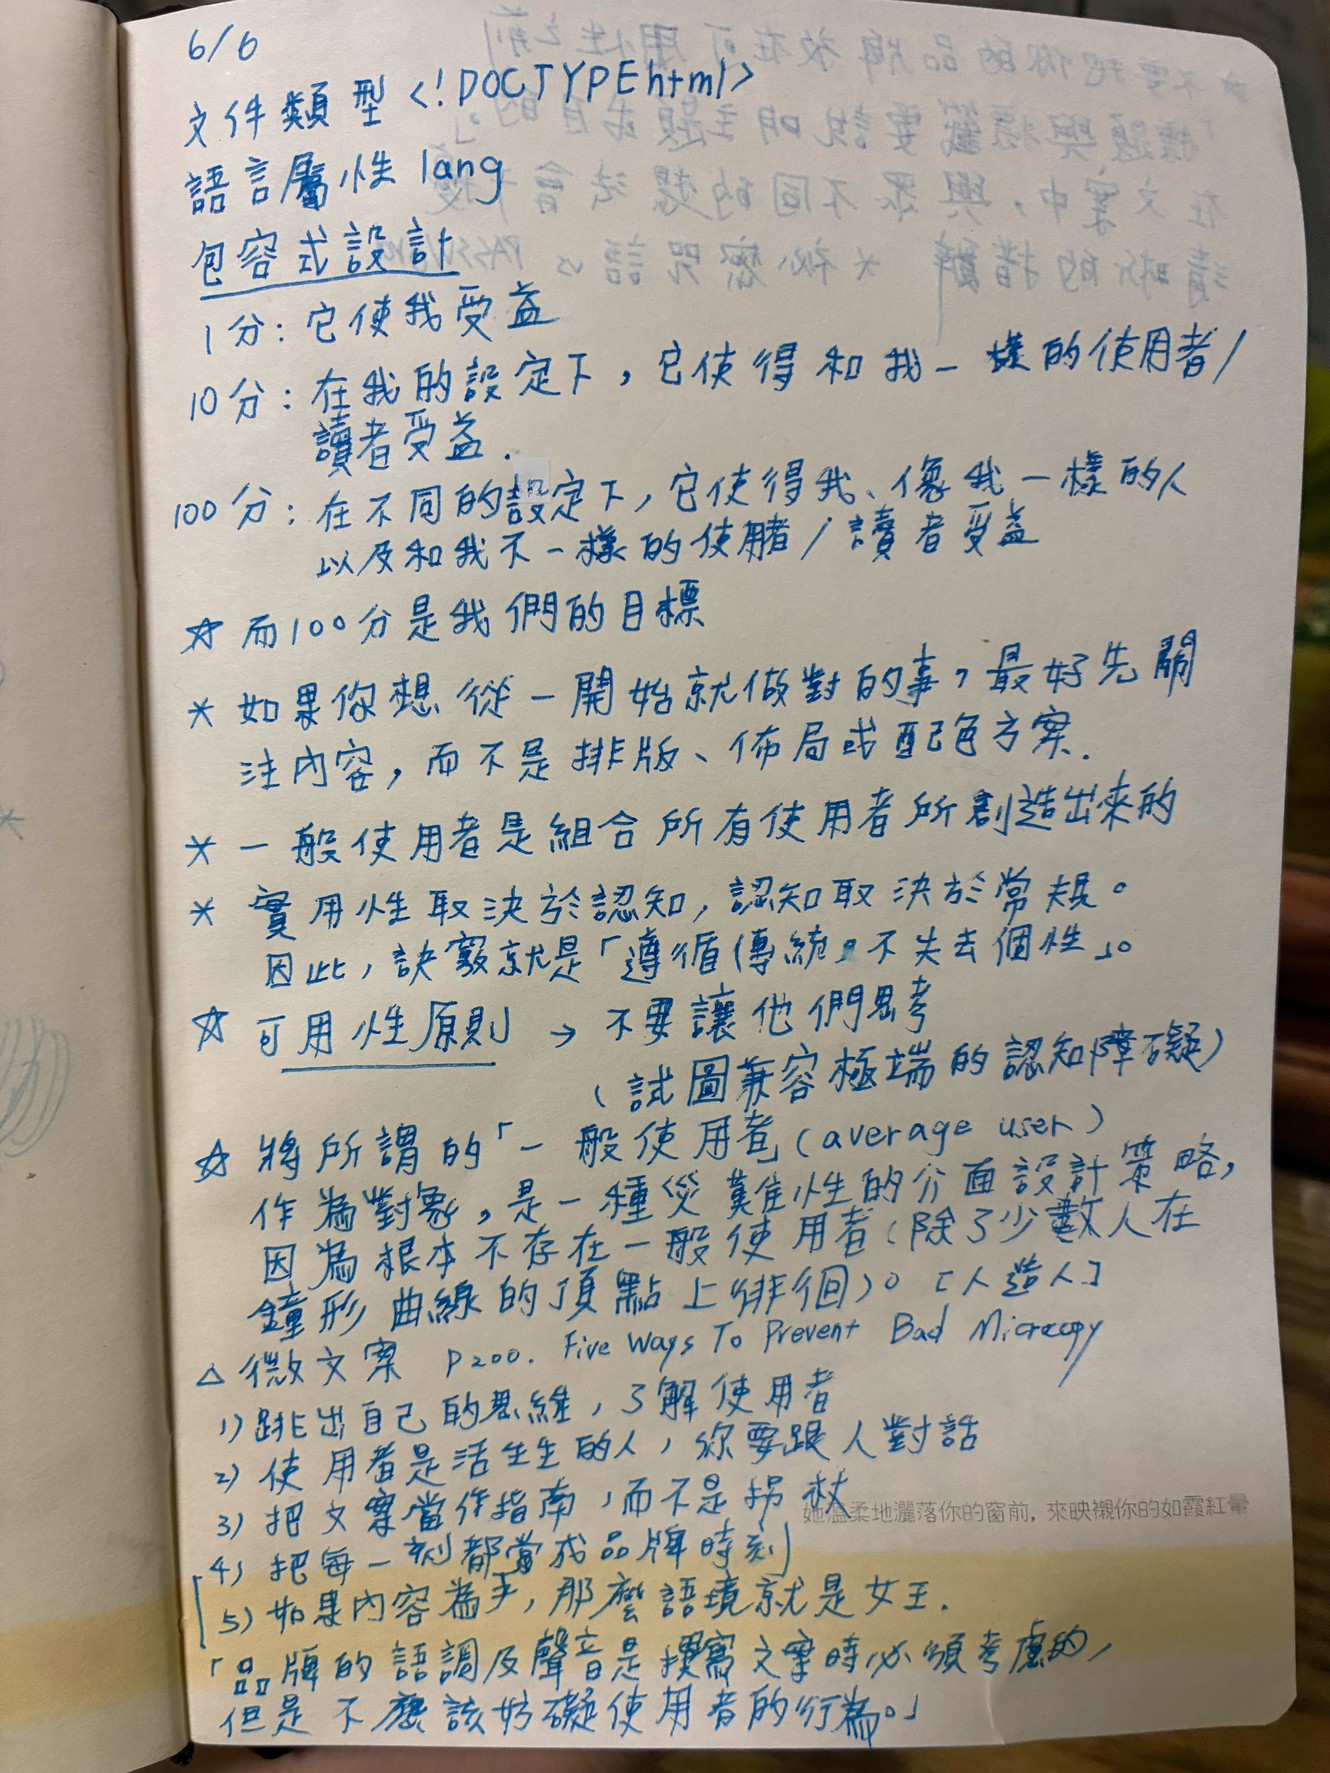 6/6
文件類型 <!DOCTYPE html>
語言屬性 lang
包容式設計
1分：它使我受益
10分：在我的設定下，它使得和我一樣的使用者/
讀者受益.
100分：在不同的設定下，它使得我、像我一樣的人
以及和我不一樣的使用者/讀者受益
☆ 而100分是我們的目標
* 如果你想從一開始就做對的事，最好先關
注內容，而不是排版、佈局或配色方案.
* 一般使用者是組合所有使用者所創造出來的
* 實用性取決於認知，認知取決於常規。
因此，訣竅就是「遵循傳統，不失去個性」。
☆ 可用性原則 → 不要讓他們思考
(試圖兼容極端的認知障礙)
☆ 將所謂的「一般使用者 (average user)
作為對象，是一種災難性的介面設計策略，
因為根本不存在一般使用者 (除了少數人在
鐘形曲線的頂點上徘徊)。[人造人]
△ 微文案 P200. Five Ways To Prevent Bad Microcopy
1) 跳出自己的思維，了解使用者
2) 使用者是活生生的人，你要跟人對話
3) 把文案當作指南，而不是拐杖
她溫柔地灑落你的窗前，來映襯你的如霞紅暈
4) 把每一刻都當成品牌時刻
5) 如果內容為王，那麼語境就是女王.
「品牌的語調及聲音是撰寫文案時必須考慮的，
但是不應該妨礙使用者的行為。」